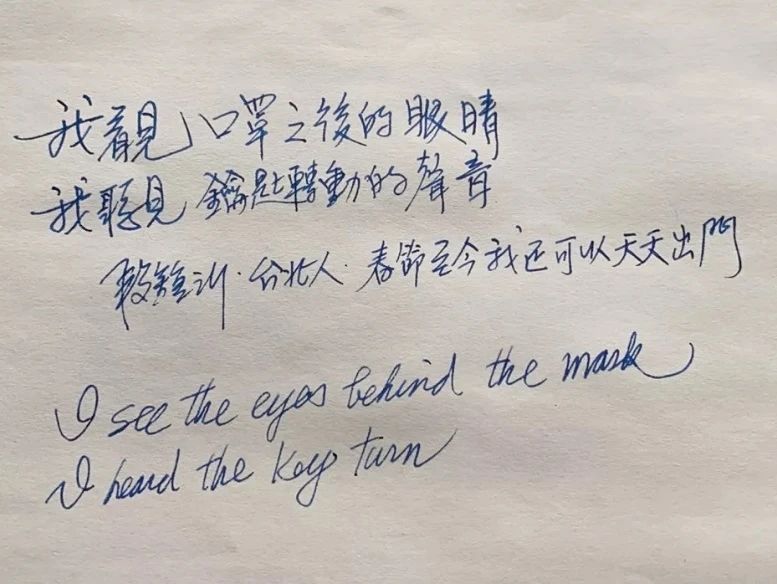 我看見口罩之後的眼睛
我聽見鑰匙轉動的聲音
台北人·春節至今我还可以天天出門
I see the eyes behind the mask
I heard the key turn